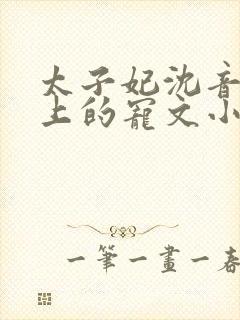 太子妃沈音
上的宠文小
一筆一畫一春